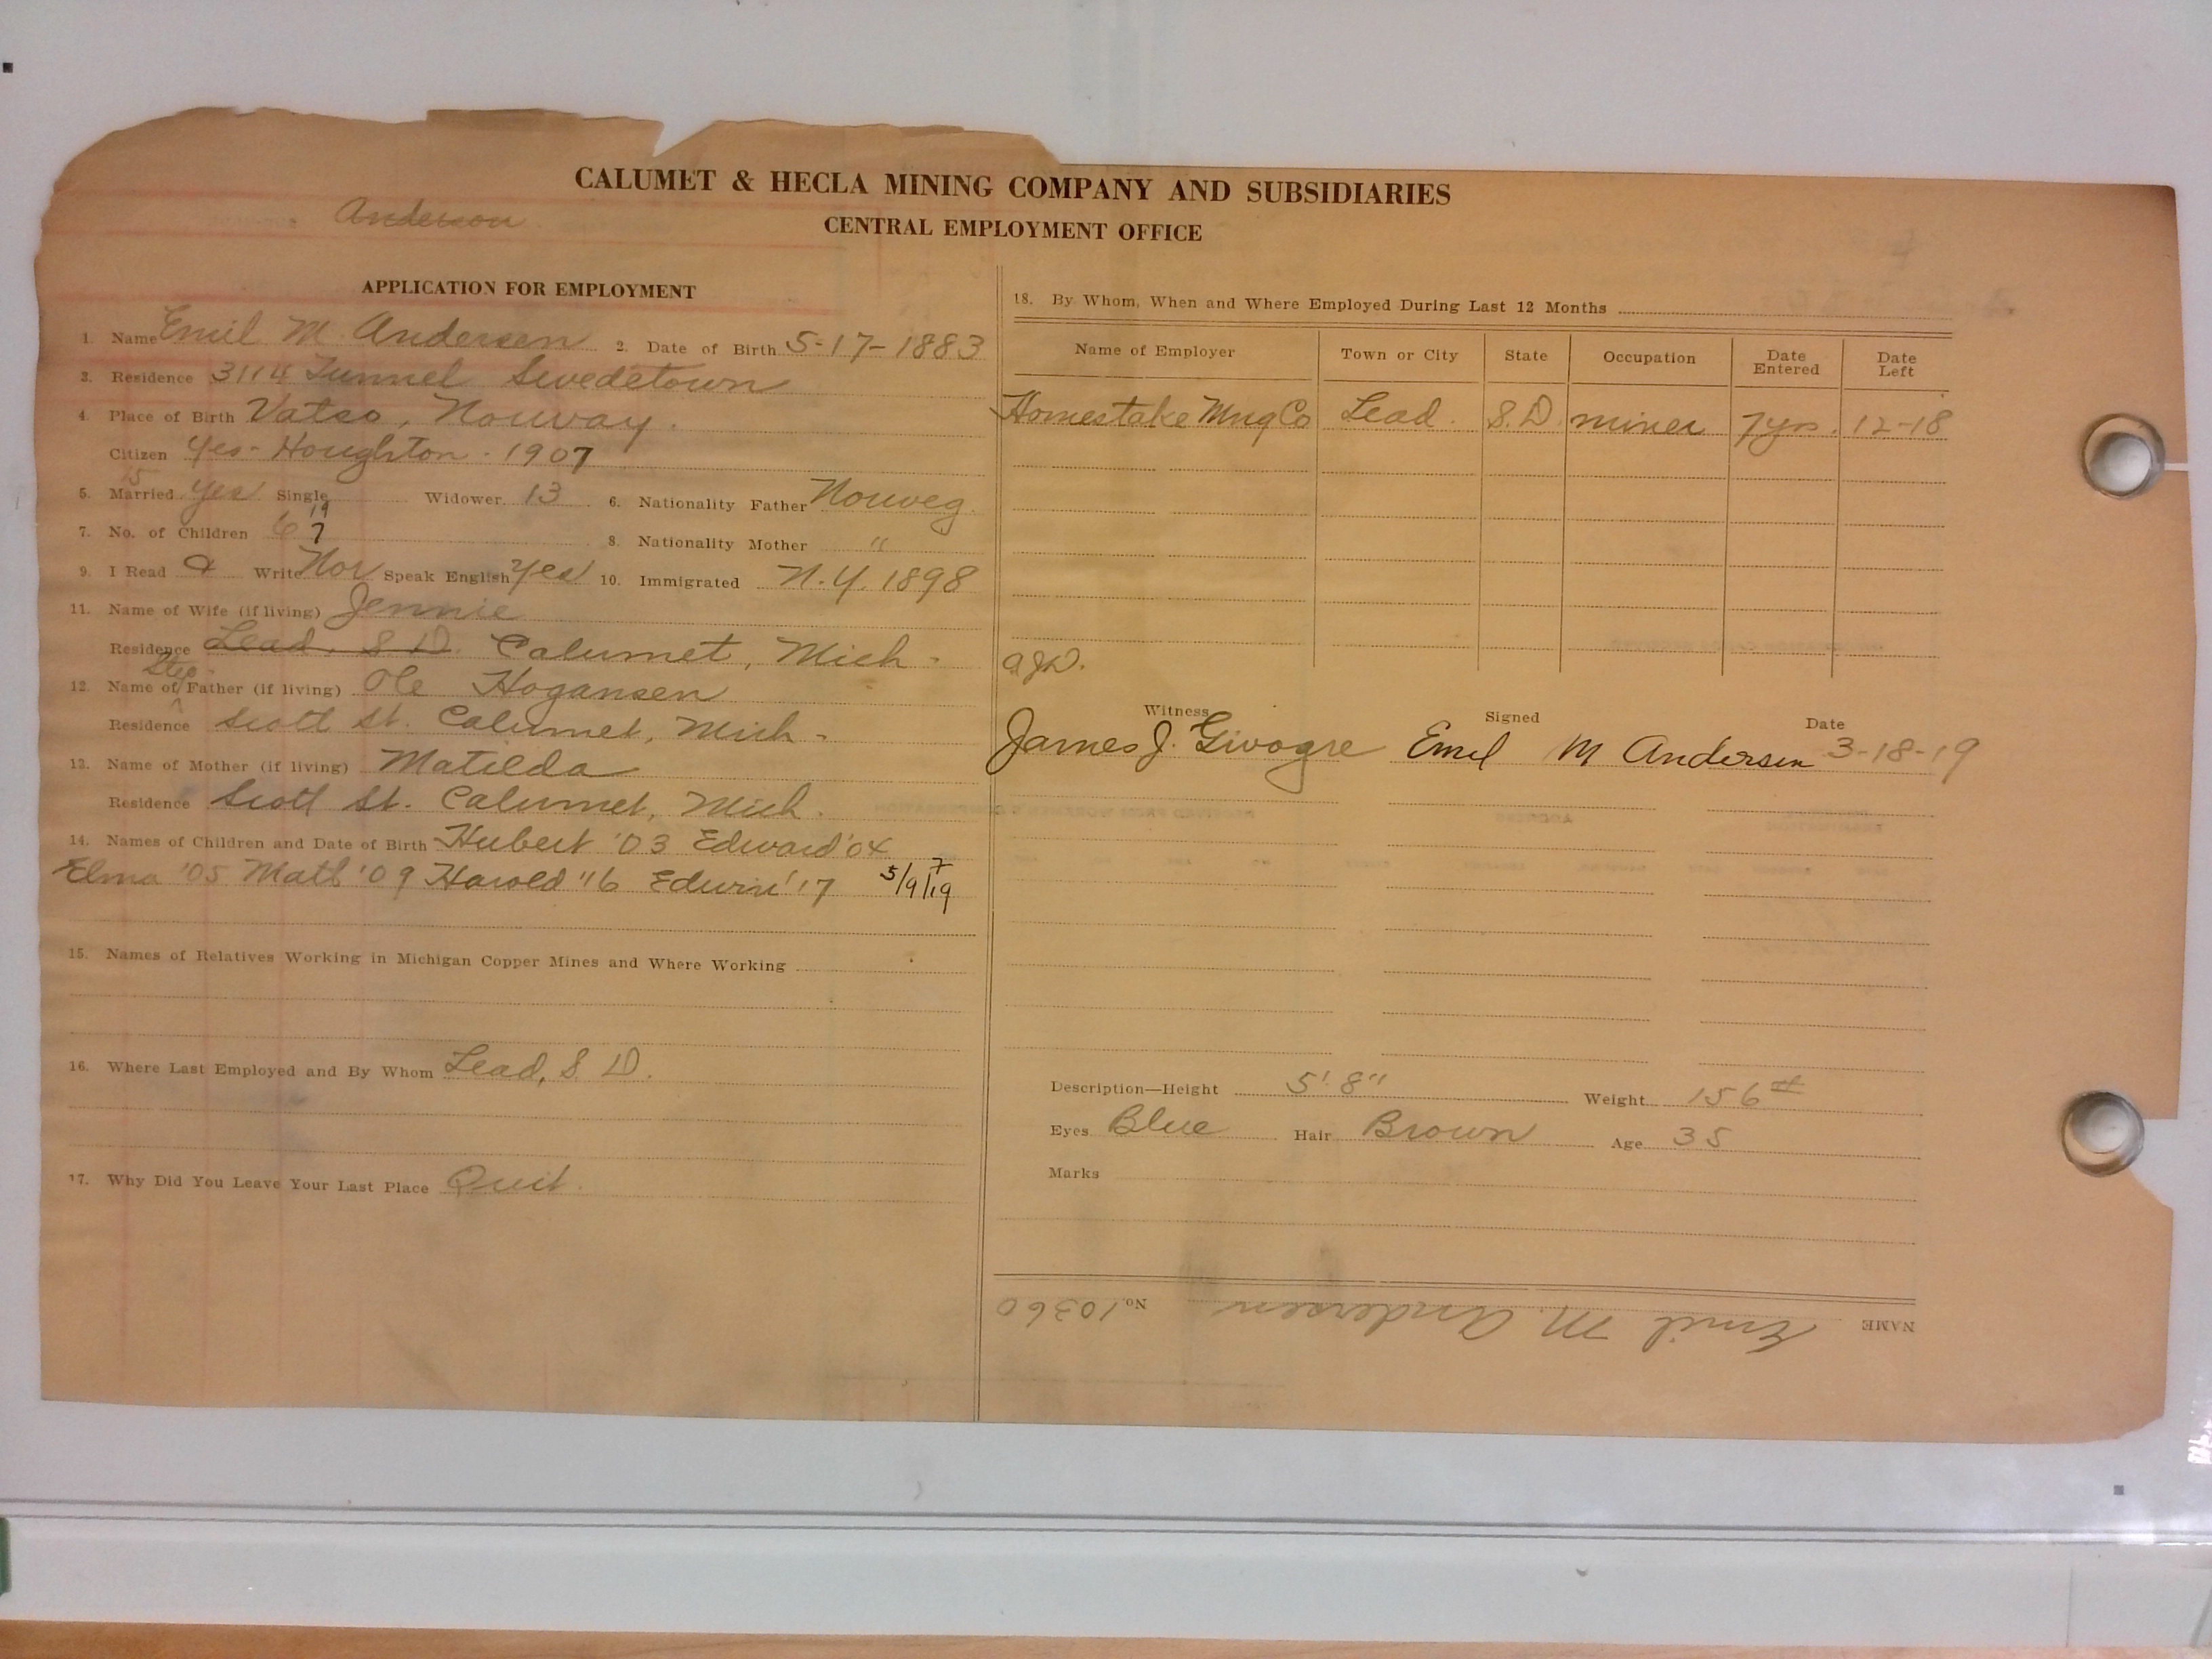 CALUMET & HECLA MINING COMPANY AND SUBSIDIARIES
Anderson
CENTRAL EMPLOYMENT OFFICE
APPLICATION FOR EMPLOYMENT
1. Name Emil M. Andersen 2. Date of Birth 5-17-1883
3. Residence 3114 Tunnel Swedetown
4. Place of Birth Vatso, Norway.
Citizen Yes - Houghton - 1907
15
5. Married Yes Single Widower 13 6. Nationality Father Norweg.
19
7. No. of Children 6 7 8. Nationality Mother "
9. I Read & Write Nor Speak English Yes 10. Immigrated N.Y. 1898
11. Name of Wife (if living) Jennie
Residence Lead, S D. Calumet, Mich -
12. Name of Step Father (if living) Ole Hogansen
Residence Scott St. Calumet, Mich -
13. Name of Mother (if living) Matilda
Residence Scott St. Calumet, Mich.
14. Names of Children and Date of Birth Hubert '03 Edward '04
Elma '05 Matt '09 Harold "16 Edwin '17 5/9/19 7
15. Names of Relatives Working in Michigan Copper Mines and Where Working
16. Where Last Employed and By Whom Lead, S. D.
17. Why Did You Leave Your Last Place Quit.
18. By Whom, When and Where Employed During Last 12 Months
Name of Employer Town or City State Occupation Date Entered Date Left
Homestake Mng Co Lead. S.D. miner 7 yrs. 12-18
Witness Signed Date
James J. Givogre Emil M Andersen 3-18-19
Description—Height 5' 8" Weight 156 #
Eyes Blue Hair Brown Age 35
Marks
NAME Emil M. Andersen No. 10360